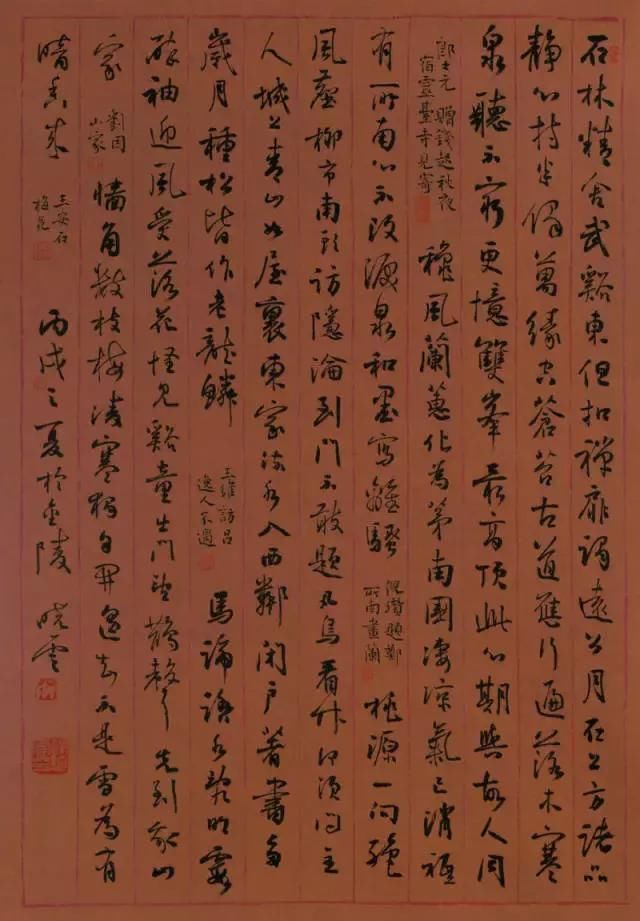 石林精舍武谿東但扣禪扉謁遠公月在上方諸品
靜心持半偈萬緣空蒼苔古道應行遍落木寒
泉聽不窮更憶雙峯最高頂此心期與故人同
郎士元 贈錢起秋夜
宿靈臺寺見寄
穐風蘭蕙化為茅南國凄涼氣已消祗
有所南心不改淚泉和墨寫離騷
倪瓚題鄭
所南畫蘭
桃源一向絕
風塵柳市南頭訪隱淪到門不敢題凡鳥看竹何須問主
人城上青山如屋裏東家流水入西鄰閉戶著書多
歲月種松皆作老龍鱗
王維訪呂
逸人不遇
馬蹄踏水亂明霞
醉袖迎風受落花怪見谿童出門望鵲聲先到我山
家
劉因
山家
墻角數枝梅凌寒獨自開遥知不是雪為有
暗香来
王安石
梅花
丙戌之夏於金陵 曉雲